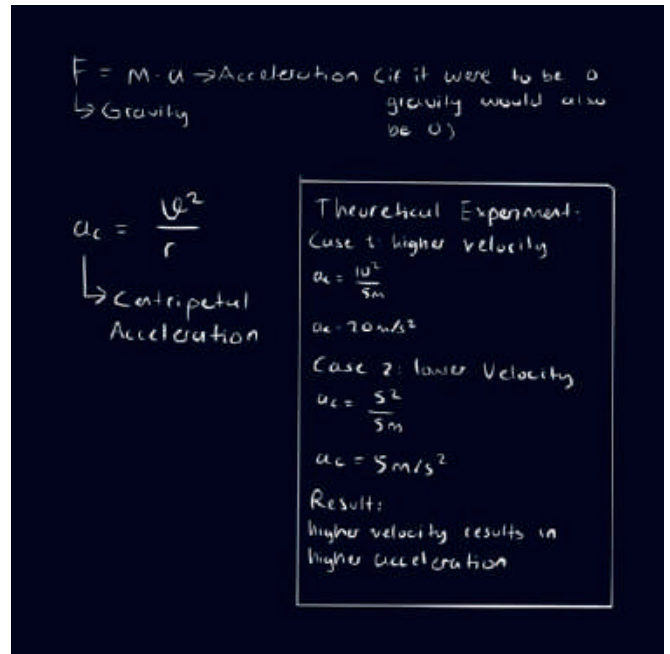 F = m · a → Acceleration (if it were to be 0
gravity would also
be 0)
↳ Gravity
ac = v²/r
↳ Centripetal
Acceleration
Theoretical Experiment:
Case 1: higher velocity
ac = 10²/5m
ac = 20m/s²
Case 2: lower Velocity
ac = 5²/5m
ac = 5m/s²
Result:
higher velocity results in
higher acceleration